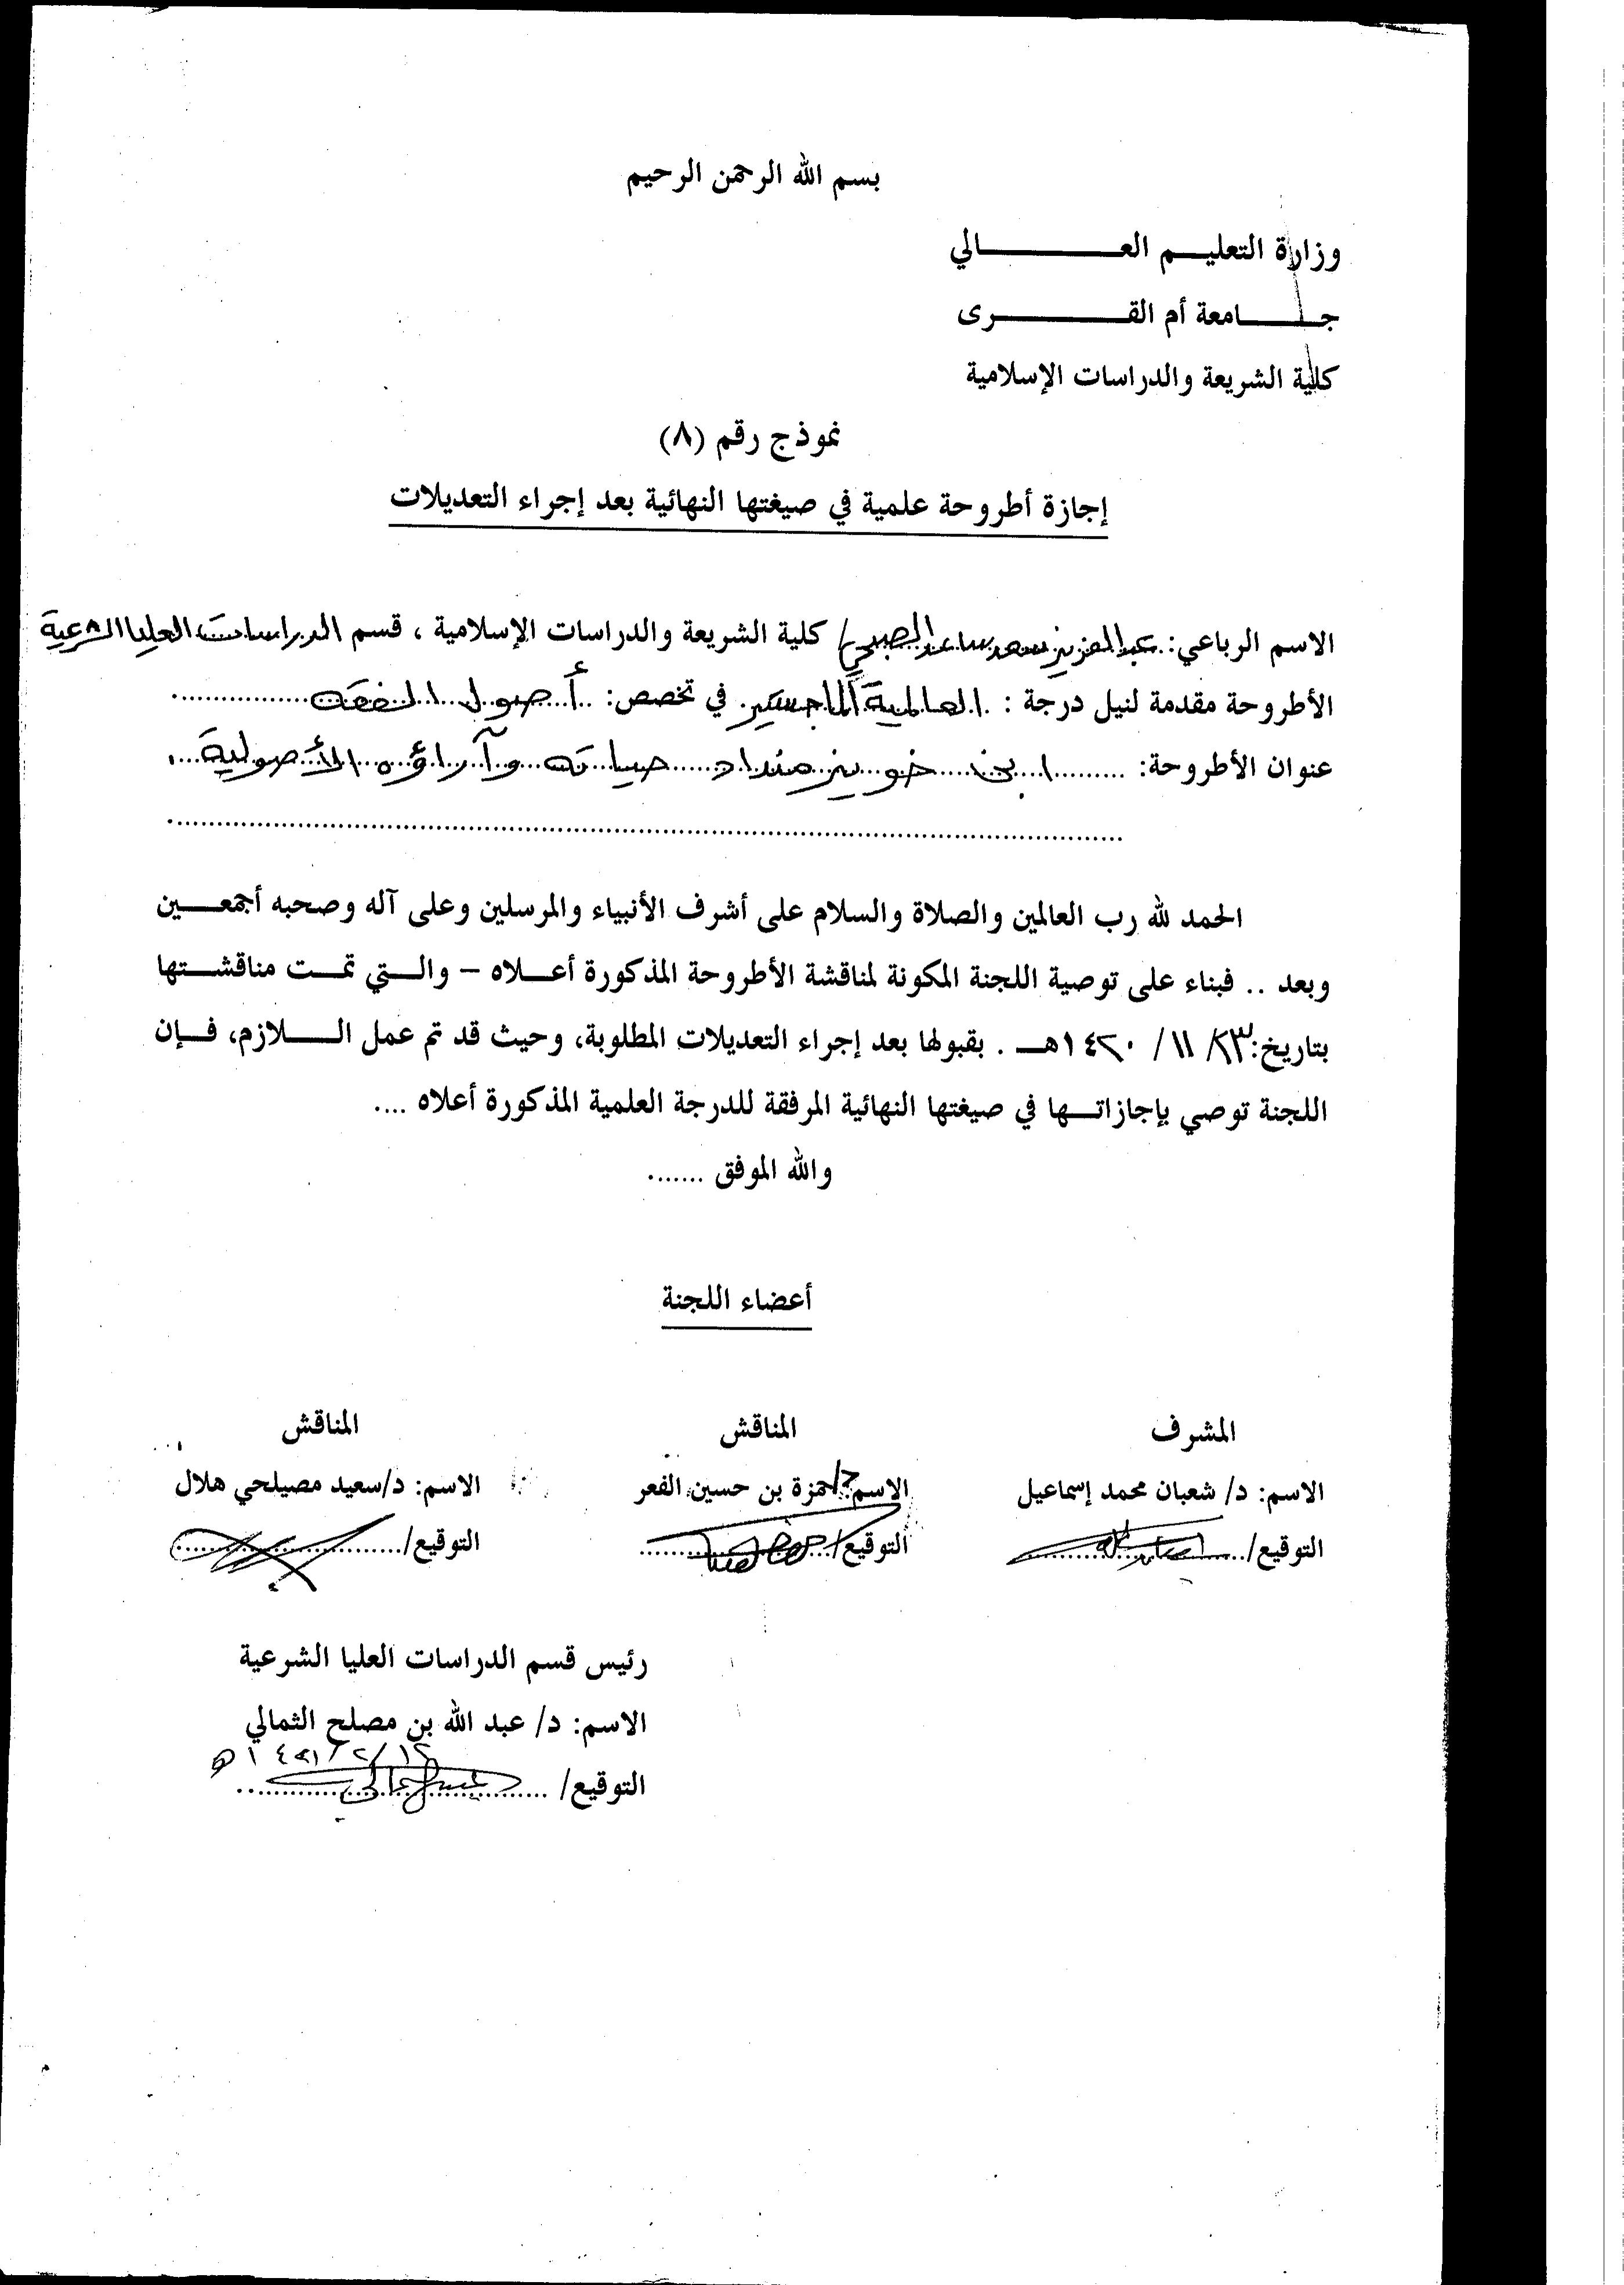 بسم الله الرحمن الرحيم
وزارة التعليم العالي
جامعة أم القرى
كلية الشريعة والدراسات الإسلامية
نموذج رقم (٨)
إجازة أطروحة علمية في صيغتها النهائية بعد إجراء التعديلات
الاسم الرباعي: عبدالعزيز سعد ساعد الصبحي / كلية الشريعة والدراسات الإسلامية ، قسم الدراسات العليا الشرعية
الأطروحة مقدمة لنيل درجة : العالمية الماجستير في تخصص: أصول الفقه
عنوان الأطروحة: ابن خويز منداد حياته وآراؤه الأصولية
الحمد لله رب العالمين والصلاة والسلام على أشرف الأنبياء والمرسلين وعلى آله وصحبه أجمعين
وبعد .. فبناء على توصية اللجنة المكونة لمناقشة الأطروحة المذكورة أعلاه – والتي تمت مناقشتها
بتاريخ: ٢٣/ ١١ / ١٤٢٠هـ . بقبولها بعد إجراء التعديلات المطلوبة، وحيث قد تم عمل اللازم، فإن
اللجنة توصي بإجازاتها في صيغتها النهائية المرفقة للدرجة العلمية المذكورة أعلاه ....
والله الموفق .......
أعضاء اللجنة
المشرف المناقش المناقش
الاسم: د/ شعبان محمد إسماعيل الاسم: د/حمزة بن حسين الفعر الاسم: د/سعيد مصيلحي هلال
التوقيع/ التوقيع/ التوقيع/
رئيس قسم الدراسات العليا الشرعية
الاسم: د/ عبد الله بن مصلح الثمالي
التوقيع/